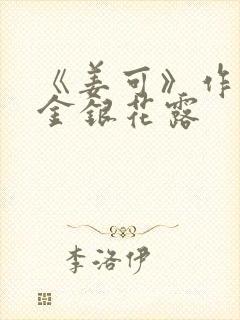 《姜可》作
金银花露
李洛伊